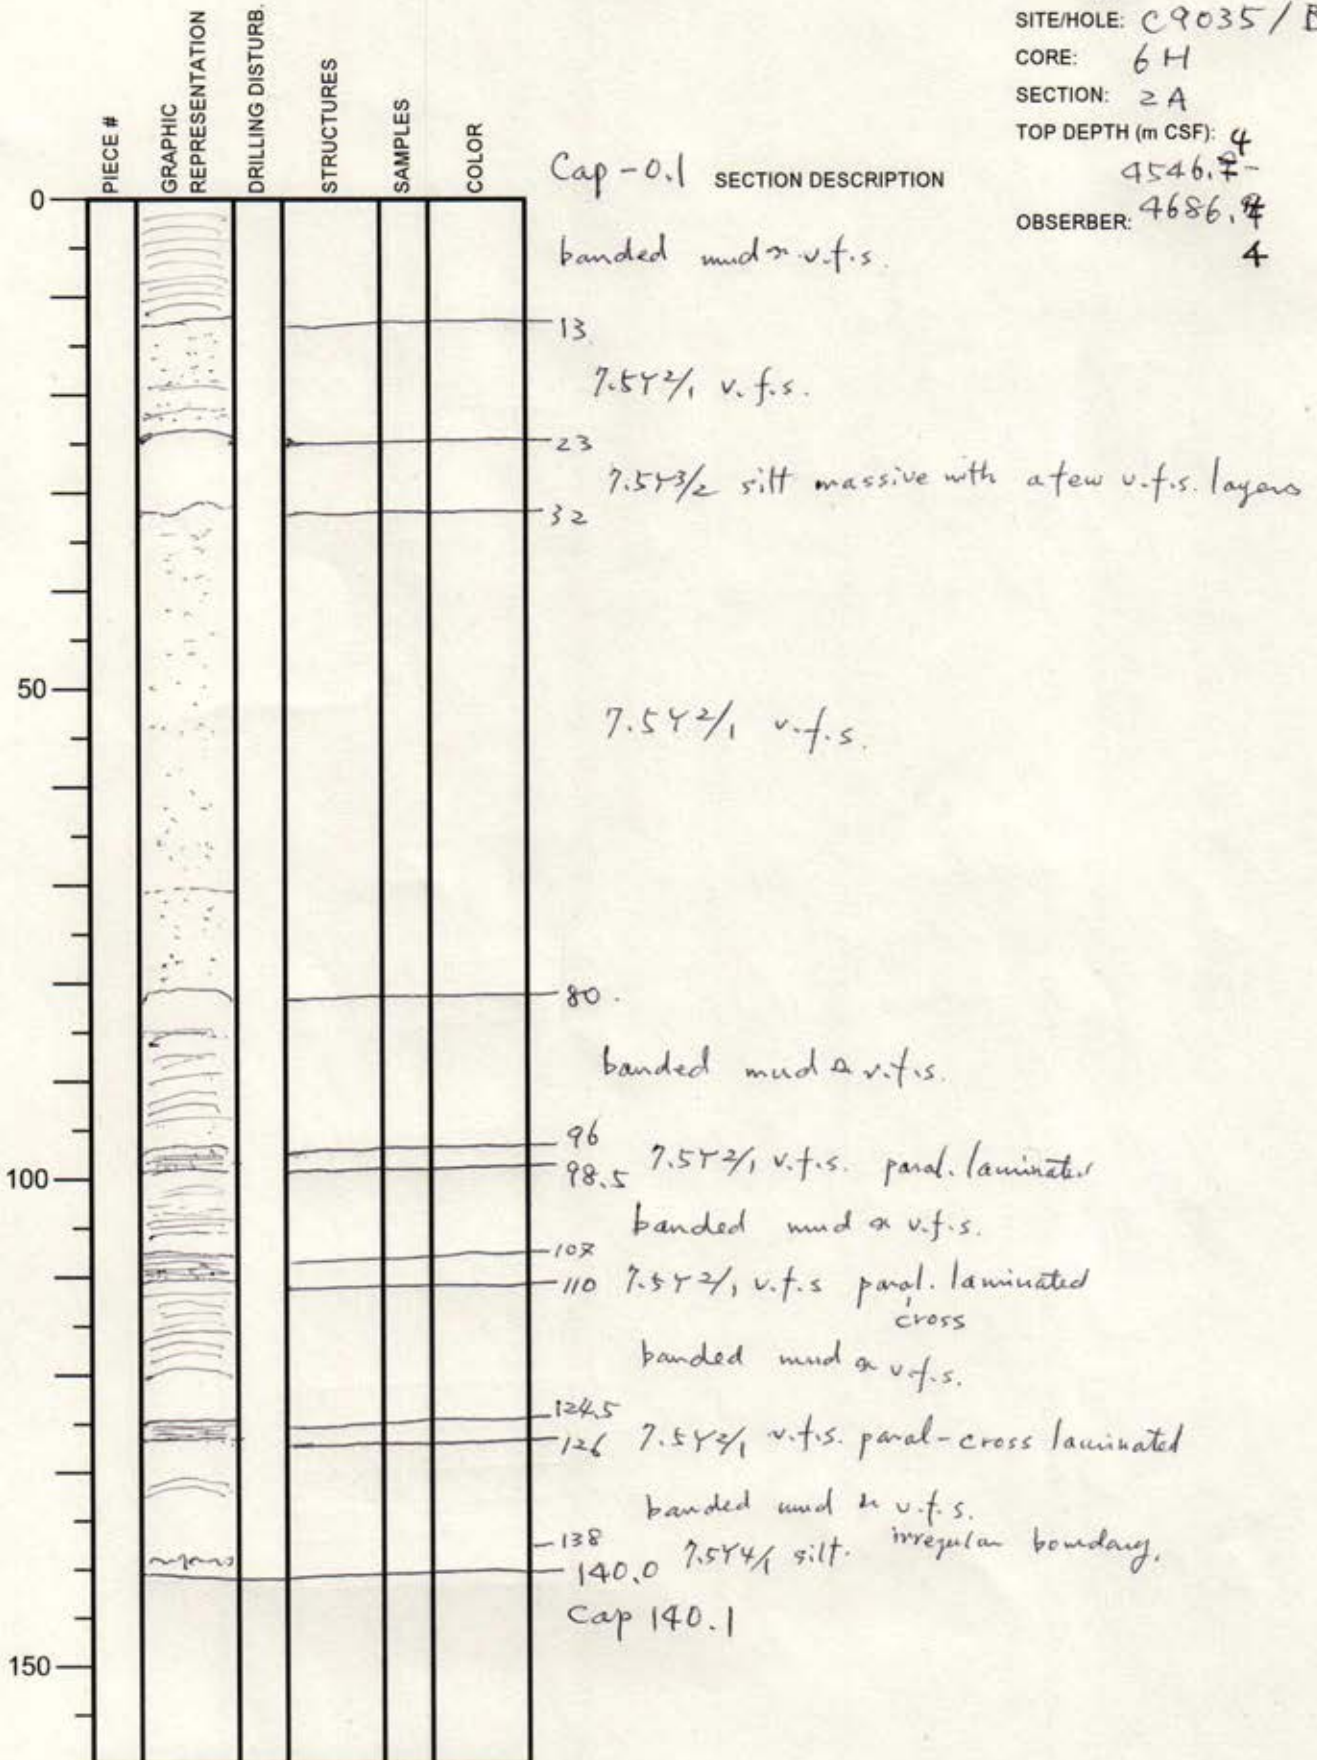 SITE/HOLE: C9035/
CORE: 6H
SECTION: 2A
TOP DEPTH (m CSF): 4
4546.7-
OBSERBER: 4686.
4
PIECE #
GRAPHIC REPRESENTATION
DRILLING DISTURB.
STRUCTURES
SAMPLES
COLOR
Cap -0.1 SECTION DESCRIPTION
0
banded mud v.f.s.
13
7.5Y2/1 v.f.s.
23
7.5Y3/2 silt massive with a few v.f.s. layers
32
50
7.5Y2/1 v.f.s.
80
banded mud v.f.s.
96
98.5 7.5Y2/1 v.f.s. paral. laminated
100
banded mud v.f.s.
107
110 7.5Y2/1 v.f.s paral. laminated
cross
banded mud v.f.s.
124.5
126 7.5Y2/1 v.f.s. paral-cross laminated
banded mud v.f.s.
138 7.5Y4/1 silt. irregular boundary.
140.0
Cap 140.1
150